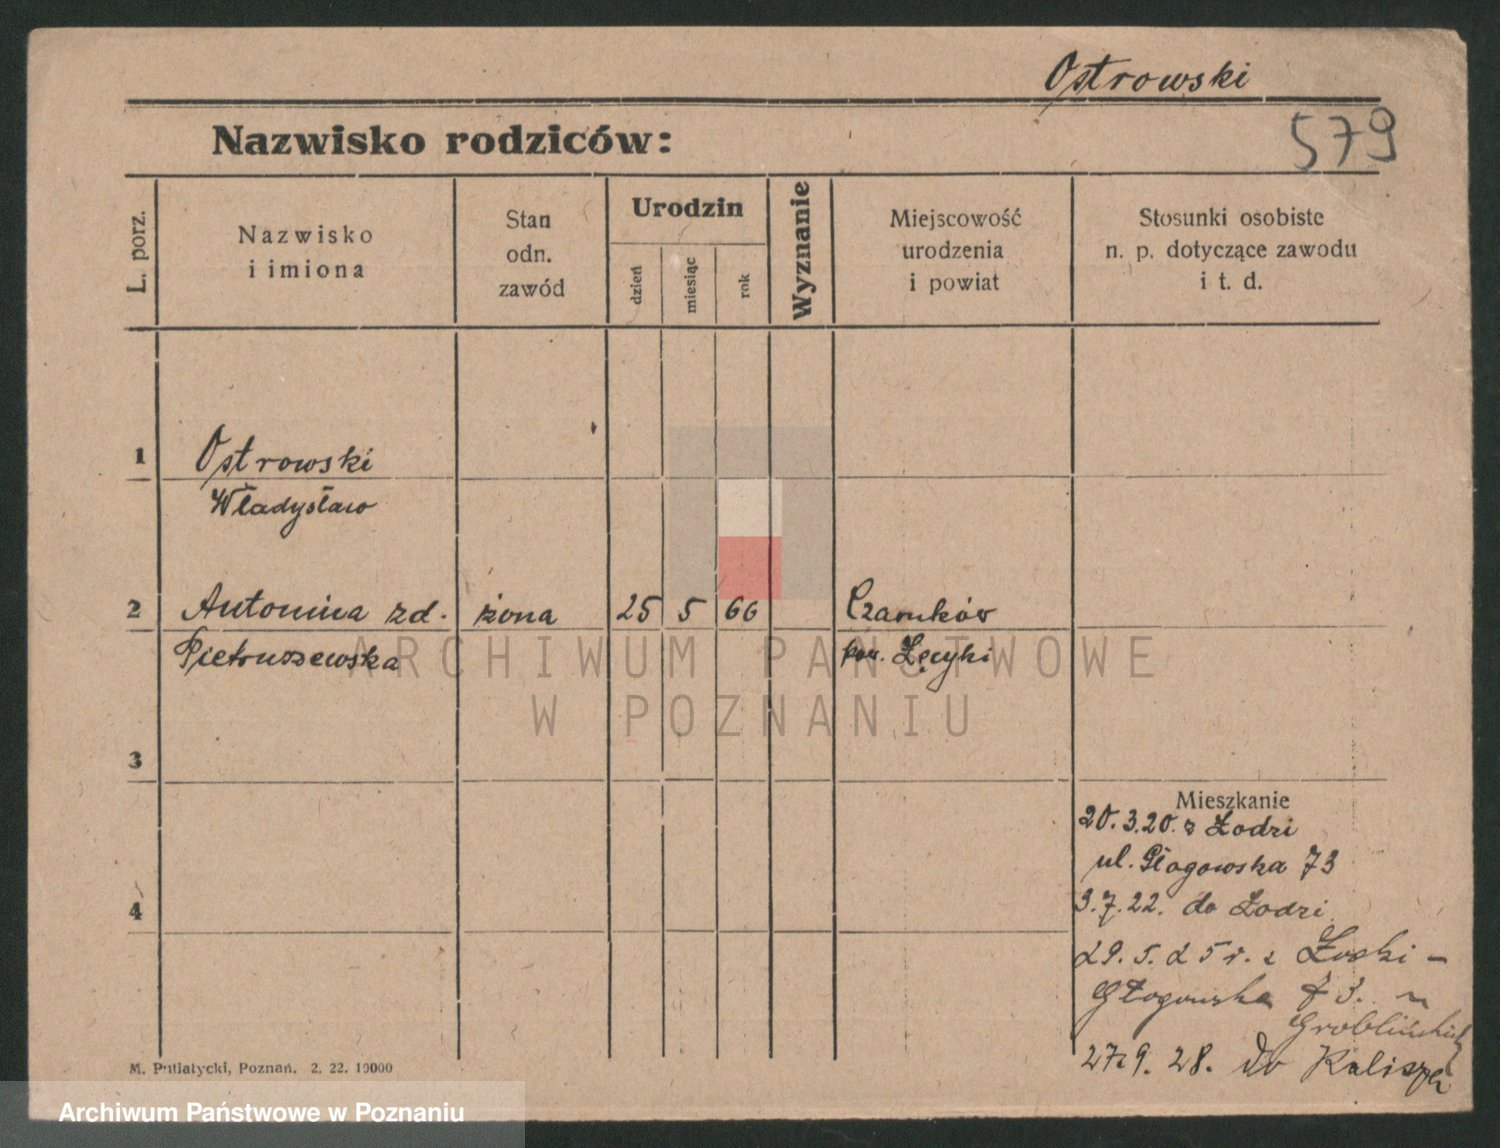 Ostrowski
579
Nazwisko rodziców:
L. porz.
Nazwisko
i imiona
Stan
odn.
zawód
Urodzin
dzień
miesiąc
rok
Wyznanie
Miejscowość
urodzenia
i powiat
Stosunki osobiste
n. p. dotyczące zawodu
i t. d.
1 Ostrowski
Władysław
2 Antonina zd. żona 25 5 66 Czarnków
Pietruszewska pow. Łęcyki
3
4
Mieszkanie
20.3.20. z Łodzi
ul. Głogowska 73
3.7.22. do Łodzi
29.5.25 r. z Łodzi -
Głogowska 73. u
27.9.28. do Kalisza
M. Putiatycki, Poznań. 2. 22. 10000
ARCHIWUM PAŃSTWOWE
W POZNANIU
Archiwum Państwowe w Poznaniu